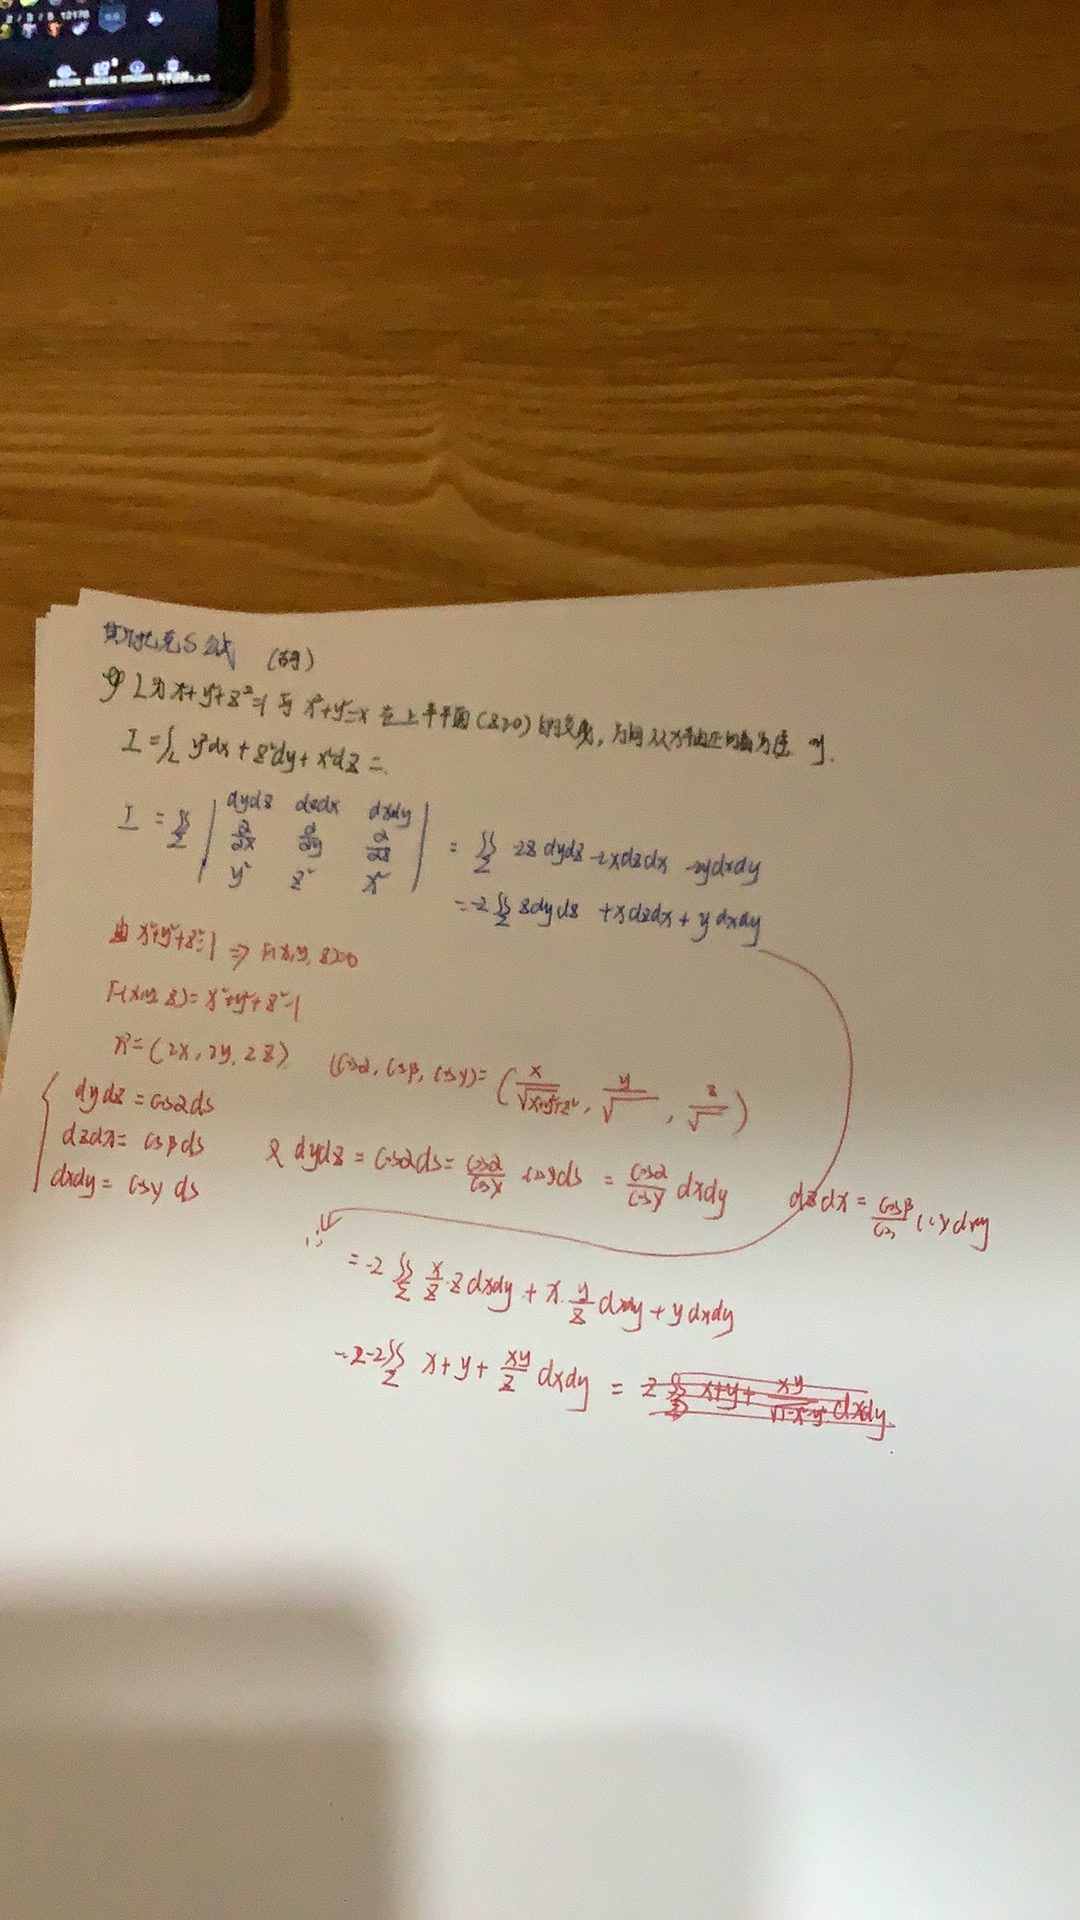 斯托克S公式 (例)
例 L为x²+y²+z²=1与x²+y²=x在上半平面(z≥0)的交线,方向从x轴正向看为逆时.
I=∫L y²dx+z²dy+x²dz=
I=∬Σ | dydz dzdx dxdy |
| ∂/∂x ∂/∂y ∂/∂z |
| y² z² x² |
=∬Σ -2zdydz-2xdzdx-2ydxdy
=-2∬Σ zdydz+xdzdx+ydxdy
由x²+y²+z²=1⇒F(x,y,z)=0
F(x,y,z)=x²+y²+z²-1
n⃗=(2x,2y,2z) (cosα,cosβ,cosγ)=(x/√(x²+y²+z²), y/√, z/√)
{ dydz=cosαds
dzdx=cosβds
dxdy=cosγds
又dydz=cosαds=cosα/cosγ·cosγds=cosα/cosγ dxdy
dzdx=cosβ/cos dxdy
∴
=-2∬Σ x/z·zdxdy+x·y/z dxdy+ydxdy
=-2∬Σ x+y+xy/z dxdy=2∬ x+y+xy/√(1-x²-y²) dxdy